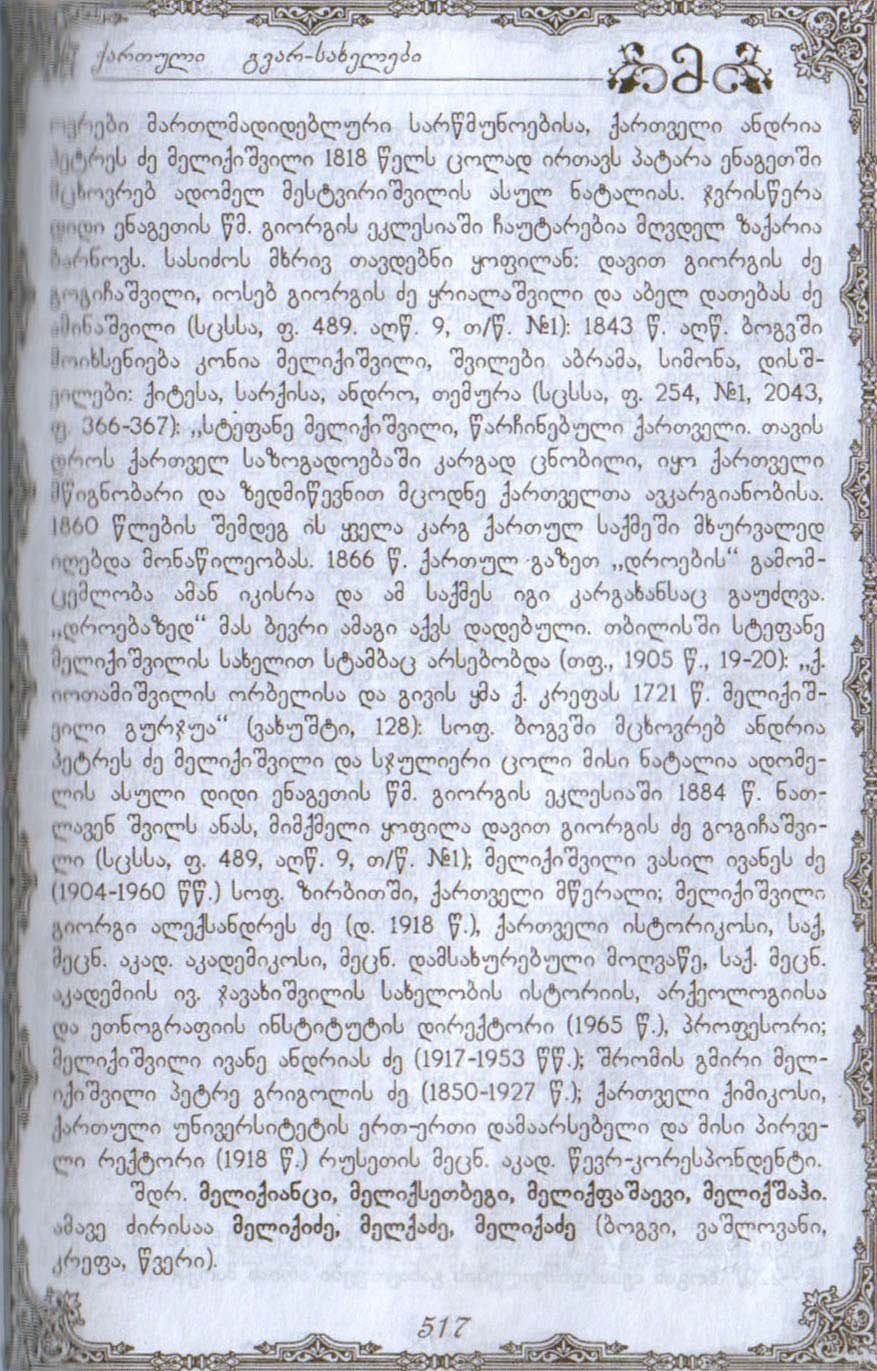 ქართული გვარ-სახელები
მ
მართლმადიდებლური სარწმუნოებისა, ქართველი ანდრია
პეტრეს ძე მელიქიშვილი 1818 წელს ცოლად ირთავს პატარა ენაგეთში
მცხოვრებ ადომელ მესტვირიშვილის ასულ ნატალიას. ჯვრისწერა
დიდი ენაგეთის წმ. გიორგის ეკლესიაში ჩაუტარებია მღვდელ ზაქარია
ბარნოვს. სასიძოს მხრივ თავდებნი ყოფილან: დავით გიორგის ძე
გოგიჩაშვილი, იოსებ გიორგის ძე ყრიალაშვილი და აბელ დათებას ძე
ამინაშვილი (სცსსა, ფ. 489. აღწ. 9, თ/წ. №1): 1843 წ. აღწ. ბოგვში
მოიხსენიება კონია მელიქიშვილი, შვილები აბრამა, სიმონა, დისშ-
ვილები: ქიტესა, სარქისა, ანდრო, თემურა (სცსსა, ფ. 254, №1, 2043,
ფ. 366-367): „სტეფანე მელიქიშვილი, წარჩინებული ქართველი. თავის
დროს ქართველ საზოგადოებაში კარგად ცნობილი, იყო ქართველი
მწიგნობარი და ზედმიწევნით მცოდნე ქართველთა ავკარგიანობისა.
1860 წლების შემდეგ ის ყველა კარგ ქართულ საქმეში მხურვალედ
იღებდა მონაწილეობას. 1866 წ. ქართულ გაზეთ „დროების“ გამომ-
ცემლობა ამან იკისრა და ამ საქმეს იგი კარგახანსაც გაუძღვა.
„დროებაზედ“ მას ბევრი ამაგი აქვს დადებული. თბილისში სტეფანე
მელიქიშვილის სახელით სტამბაც არსებობდა (თფ., 1905 წ., 19-20): „ქ.
იოთამიშვილის ორბელისა და გივის ყმა ქ. კრეფას 1721 წ. მელიქიშ-
ვილი გურჯუა“ (ვახუშტი, 128): სოფ. ბოგვში მცხოვრებ ანდრია
პეტრეს ძე მელიქიშვილი და სჯულიერი ცოლი მისი ნატალია ადომე-
ლის ასული დიდი ენაგეთის წმ. გიორგის ეკლესიაში 1884 წ. ნათ-
ლავენ შვილს ანას, მიმქმელი ყოფილა დავით გიორგის ძე გოგიჩაშვი-
ლი (სცსსა, ფ. 489, აღწ. 9, თ/წ. №1); მელიქიშვილი ვასილ ივანეს ძე
(1904-1960 წწ.) სოფ. ზირბითში, ქართველი მწერალი; მელიქიშვილი
გიორგი ალექსანდრეს ძე (დ. 1918 წ.), ქართველი ისტორიკოსი, საქ,
მეცნ. აკად. აკადემიკოსი, მეცნ. დამსახურებული მოღვაწე, საქ. მეცნ.
აკადემიის ივ. ჯავახიშვილის სახელობის ისტორიის, არქეოლოგიისა
და ეთნოგრაფიის ინსტიტუტის დირექტორი (1965 წ.), პროფესორი;
მელიქიშვილი ივანე ანდრიას ძე (1917-1953 წწ.); შრომის გმირი მელ-
იქიშვილი პეტრე გრიგოლის ძე (1850-1927 წ.); ქართველი ქიმიკოსი,
ქართული უნივერსიტეტის ერთ-ერთი დამაარსებელი და მისი პირვე-
ლი რექტორი (1918 წ.) რუსეთის მეცნ. აკად. წევრ-კორესპონდენტი.
შდრ. მელიქიანცი, მელიქსეთბეგი, მელიქფაშაევი, მელიქშაჰი.
ამავე ძირისაა მელიქიძე, მელქაძე, მელიქაძე (ბოგვი, ვაშლოვანი,
კრეფა, წვერი).
517